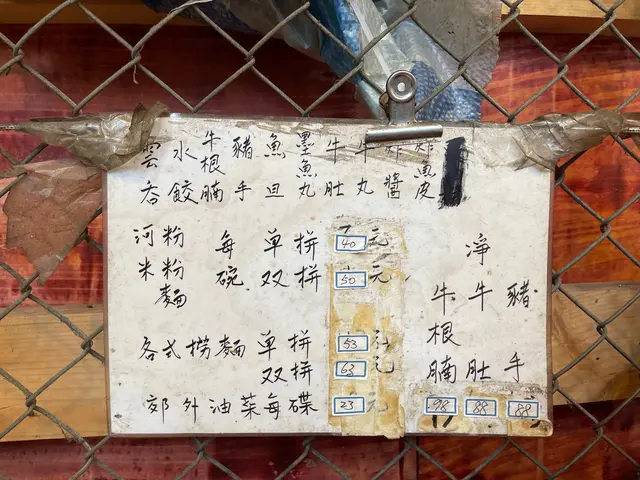 雲吞
水餃
牛根腩
豬手
魚旦
墨魚丸
牛肚
牛丸
炸醬
炸魚皮
河粉 每 单拼 40 元
米粉 碗 双拼 50 元
麵
各式撈麵 单拼 53
双拼 63
郊外油菜每碟 23 元
淨
牛根腩 98
牛肚 88
豬手 88